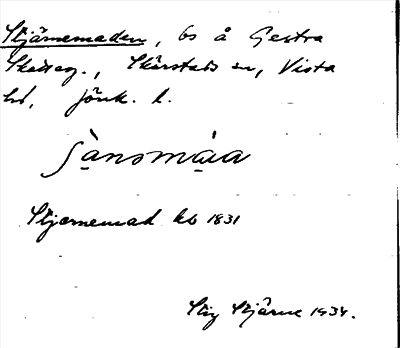 Stjärnemaden, bs å Gestra
Skatteg., Skärstads sn, Vista
hd, Jönk. l.
Stjernemad kb 1831
Stig Stjärne 1934.